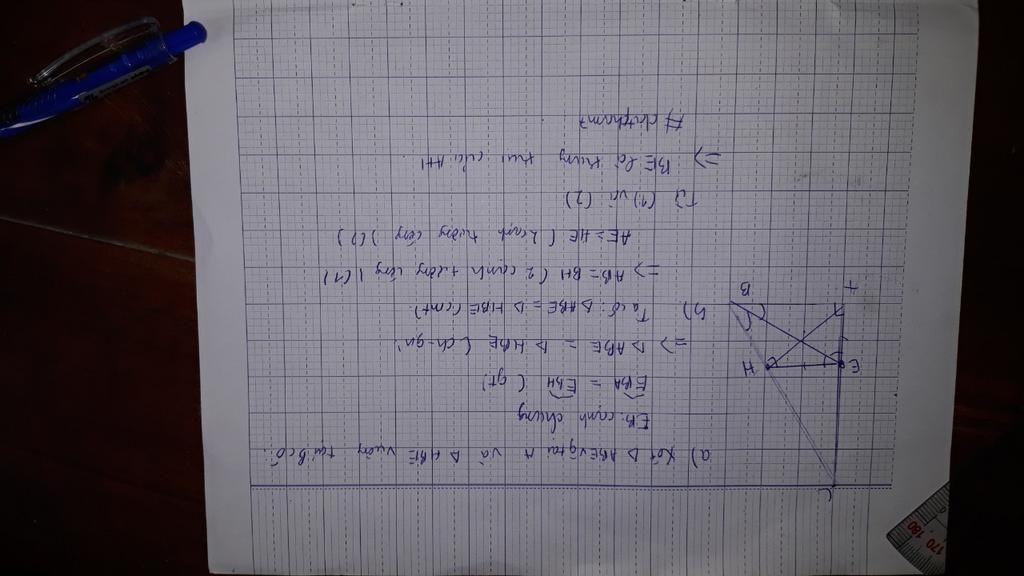 a) Xét Δ ABE vg tại A và Δ HBE vuông tại B có:
EB: cạnh chung
EBA = EBH ( gt)
=> Δ ABE = Δ HBE ( ch-gn)
b) Ta có: Δ ABE = Δ HBE (cmt)
=> AB = BH ( 2 cạnh tương ứng ) (1)
AE = HE ( 2 cạnh tương ứng ) (2)
Từ (1) và (2)
=> BE là trung trực của AH
C
E
H
A
B
170 180